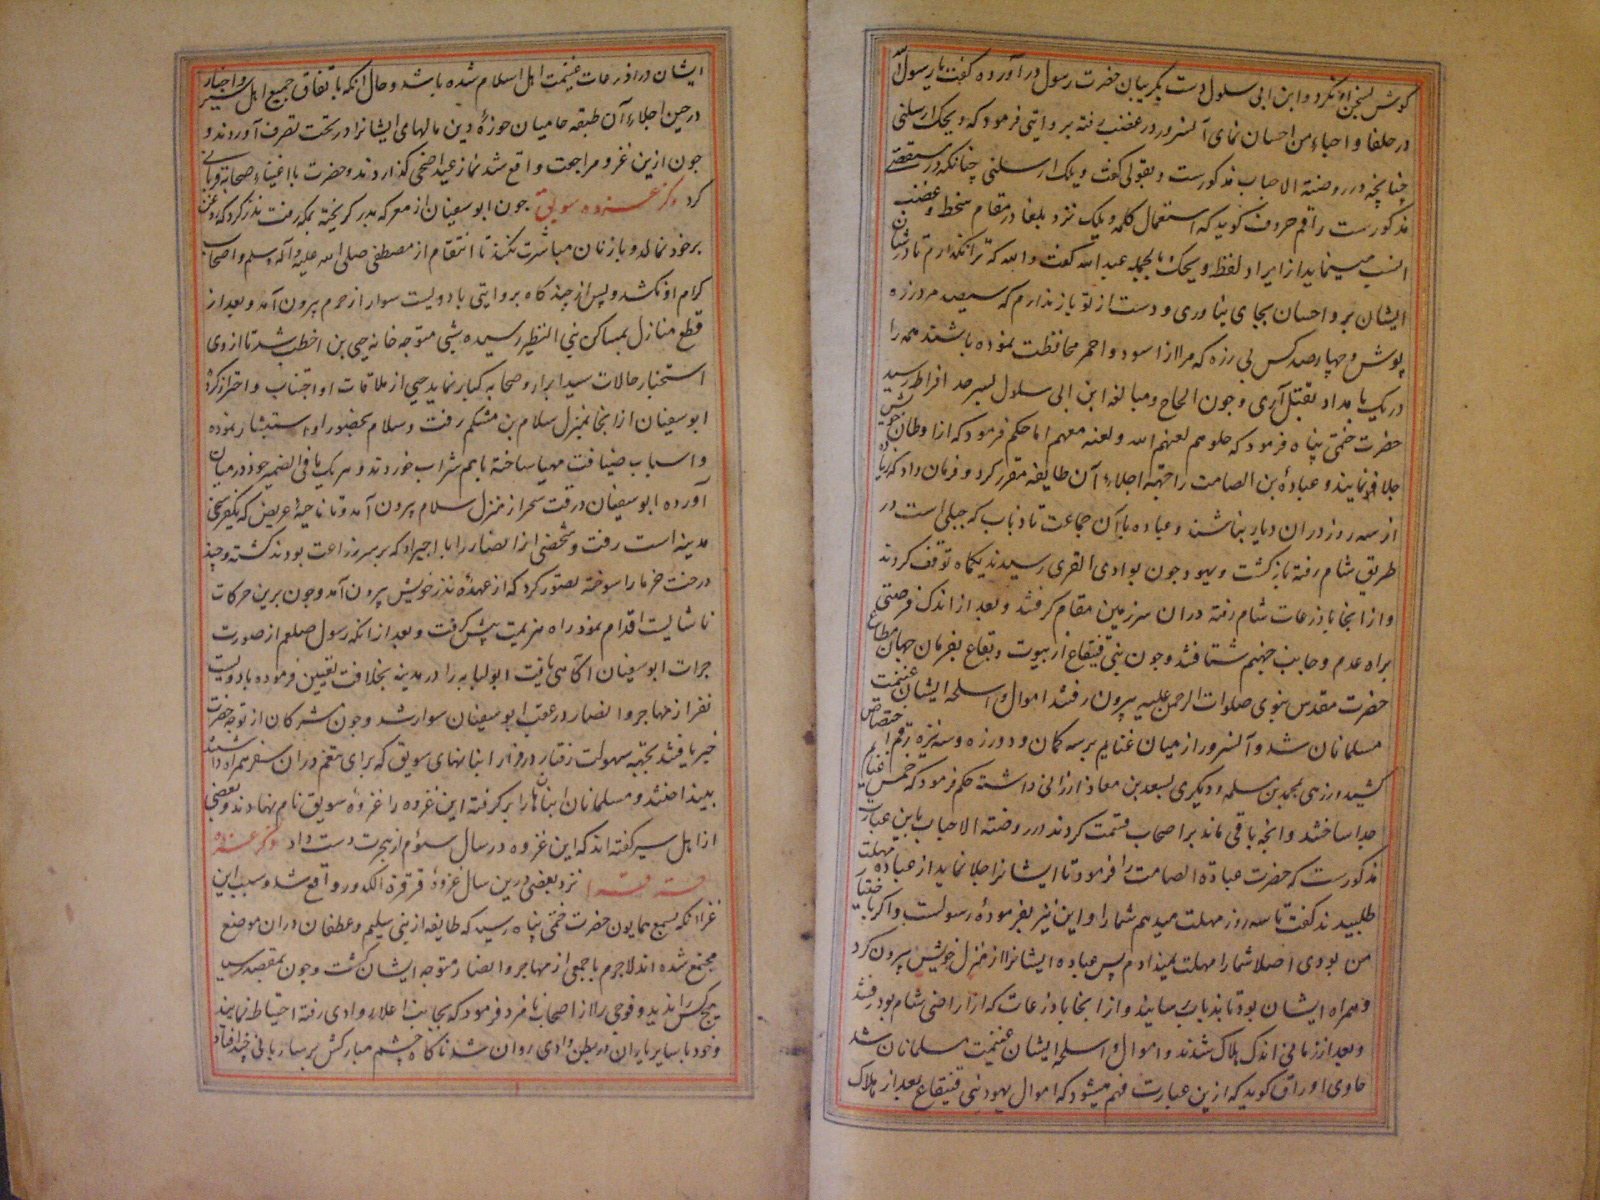 گوش بسخن او نکرد و ابن ابی سلول دست بگریبان حضرت رسول در آورده گفت یا رسول الله
در حلفا و احباء من احسان نمای آنسرور در غضب رفته بروایتی فرمود که ویحک ارسلنی
چنانچه در روضة الاحباب مذکورست و بقولی گفت ویلک ارسلنی چنانکه در
مذکورست راقم حروف گوید که استعمال کلمه ویلک نزد بلغا در مقام سخط و غضب
انسب مینماید از ایراد لفظ ویحک بالجمله عبد الله گفت والله که ترا نگذارم تا در شان
ایشان بر و احسان بجای نیاوری و دست از تو باز ندارم که سیصد مرد زره
پوش و چهارصد کس بی زره که مرا از اسود و احمر محافظت نموده باشند همه را
در یک بامداد بقتل آری و چون الحاح و مبالغه ابن ابی سلول بسرحد افراط رسید
حضرت ختمی پناه فرمود که خلوهم لعنهم الله و لعنه معهم اما حکم فرمود که از اوطان خویش
جلا نمایند و عبادة بن الصامت را جهة اجلاء آن طایفه مقرر کرد و فرمان داد که زیاده
از سه روز در ان دیار نباشند و عباده با آن جماعت تا ذباب که جبلی است در
طریق شام رفته بازگشت و یهود چون بوادی القری رسیدند یکماه توقف کردند
و از انجا باذرعات شام رفته در ان سرزمین مقام گرفتند و بعد از اندک فرصتی
براه عدم و جانب جهنم شتافتند و چون بنی قینقاع از بیوت و بقاع بفرمان جهان مطاع
حضرت مقدس نبوی صلوات الرحمن علیه بیرون رفتند اموال و اسلحه ایشان غنیمت
مسلمانان شد و آنسرور از میان غنایم بر سه کمان و دو زره و سه نیزه رقم اختصاص
کشید و زرهی بمحمد بن سلمه و دیگری بسعد بن معاذ ارزانی داشته حکم فرمود که خمس غنایم
جدا ساختند و آنچه باقی ماند بر اصحاب قسمت کردند در روضة الاحباب باین عبارت
مذکورست که حضرت عبادة الصامت را فرمود تا ایشانرا اجلا نماید از عباده مهلت
طلبیدند گفت تا سه روز مهلت میدهم شما را و این نیز بفرموده رسولست و اگر باختیار
من بودی اصلا شما را مهلت نمیدادم پس عباده ایشانرا از منزل خویش بیرون کرد
و همراه ایشان بود تا بذباب رسانید و از انجا باذرعات که از اراضی شام بود رفتند
و بعد از زمانی اندک هلاک شدند و اموال و اسلحه ایشان غنیمت مسلمانان شد
حاوی اوراق گوید که ازین عبارت فهم میشود که اموال یهود بنی قینقاع بعد از هلاک
ایشان در اذرعات غنیمت اهل اسلام شده باشد و حال آنکه باتفاق جمیع اهل سیر و اخبار
در حین اجلاء آن طبقه حامیان حوزه دین مالهای ایشانرا در تحت تصرف آوردند و
چون ازین غزو مراجعت واقع شد نماز عید اضحی گذاردند و حضرت با اغنیاء صحابه قربانی
کرد ذکر غزوه سویق چون ابو سفیان از معرکه بدر گریخته بمکه رفت نذر کرد که روغن
بر خود نمالد و با زنان مباشرت نکند تا انتقام از مصطفی صلی الله علیه و آله وسلم و اصحاب
کرام او نکشد و پس از چند گاه بروایتی با دویست سوار از حرم بیرون آمد و بعد از
قطع منازل بمساکن بنی النظیر رسیده شبی متوجه خانه حیی بن اخطب شد تا از وی
استخبار حالات سید ابرار و صحابه کبار نماید حیی از ملاقات او اجتناب و احتراز کرد
ابو سفیان از انجا بمنزل سلام بن مشکم رفت و سلام بحضور او استبشار نموده
و اسباب ضیافت مهیا ساخته باهم شراب خوردند و هر یک ما فی الضمیر خود در میان
آورده ابو سفیان در وقت سحر از منزل سلام بیرون آمد و تا ناحیه عریض که یکفرسخی
مدینه است رفت و شخصی از انصار را با اجیر او که بر سر زراعت بودند کشته و چند
درخت خرما را سوخته تصور کرد که از عهده نذر خویش بیرون آمد و چون برین حرکات
ناشایست اقدام نمود راه هزیمت پیش گرفت و بعد از انکه رسول صلعم از صورت
جرات ابو سفیان آگاهی یافت ابو لبابه را در مدینه بخلافت تعیین فرموده با دویست
نفر از مهاجر و انصار در عقب ابو سفیان سوار شد و چون مشرکان از توجه حضرت
خبر یافتند بجهة سهولت رفتار در فرار انبانهای سویق که برای مطعم در ان سفر همراه داشتند
بینداختند و مسلمانان انبانها را برگرفته این غزوه را غزوه سویق نام نهادند و بعضی
از اهل سیر گفته اند که این غزوه در سال سیوم از هجرت دست داد ذکر غزوه
نزد بعضی درین سال غزوه قرقرة الکدر واقع شد و سبب این
غزا آنکه بسمع همایون حضرت ختمی پناه رسید که طایفه از بنی سلیم و غطفان در ان موضع
مجتمع شده اند لاجرم با جمعی از مهاجر و انصار متوجه ایشان گشت و چون بمقصد رسید
هیچکس را ندید و فوجی را از اصحاب نامزد فرمود که بجانب اعلاء وادی رفته احتیاط نمایند
و خود با سایر یاران در بطن وادی روان شد ناگاه چشم مبارکش بر ساربانی چند افتاد